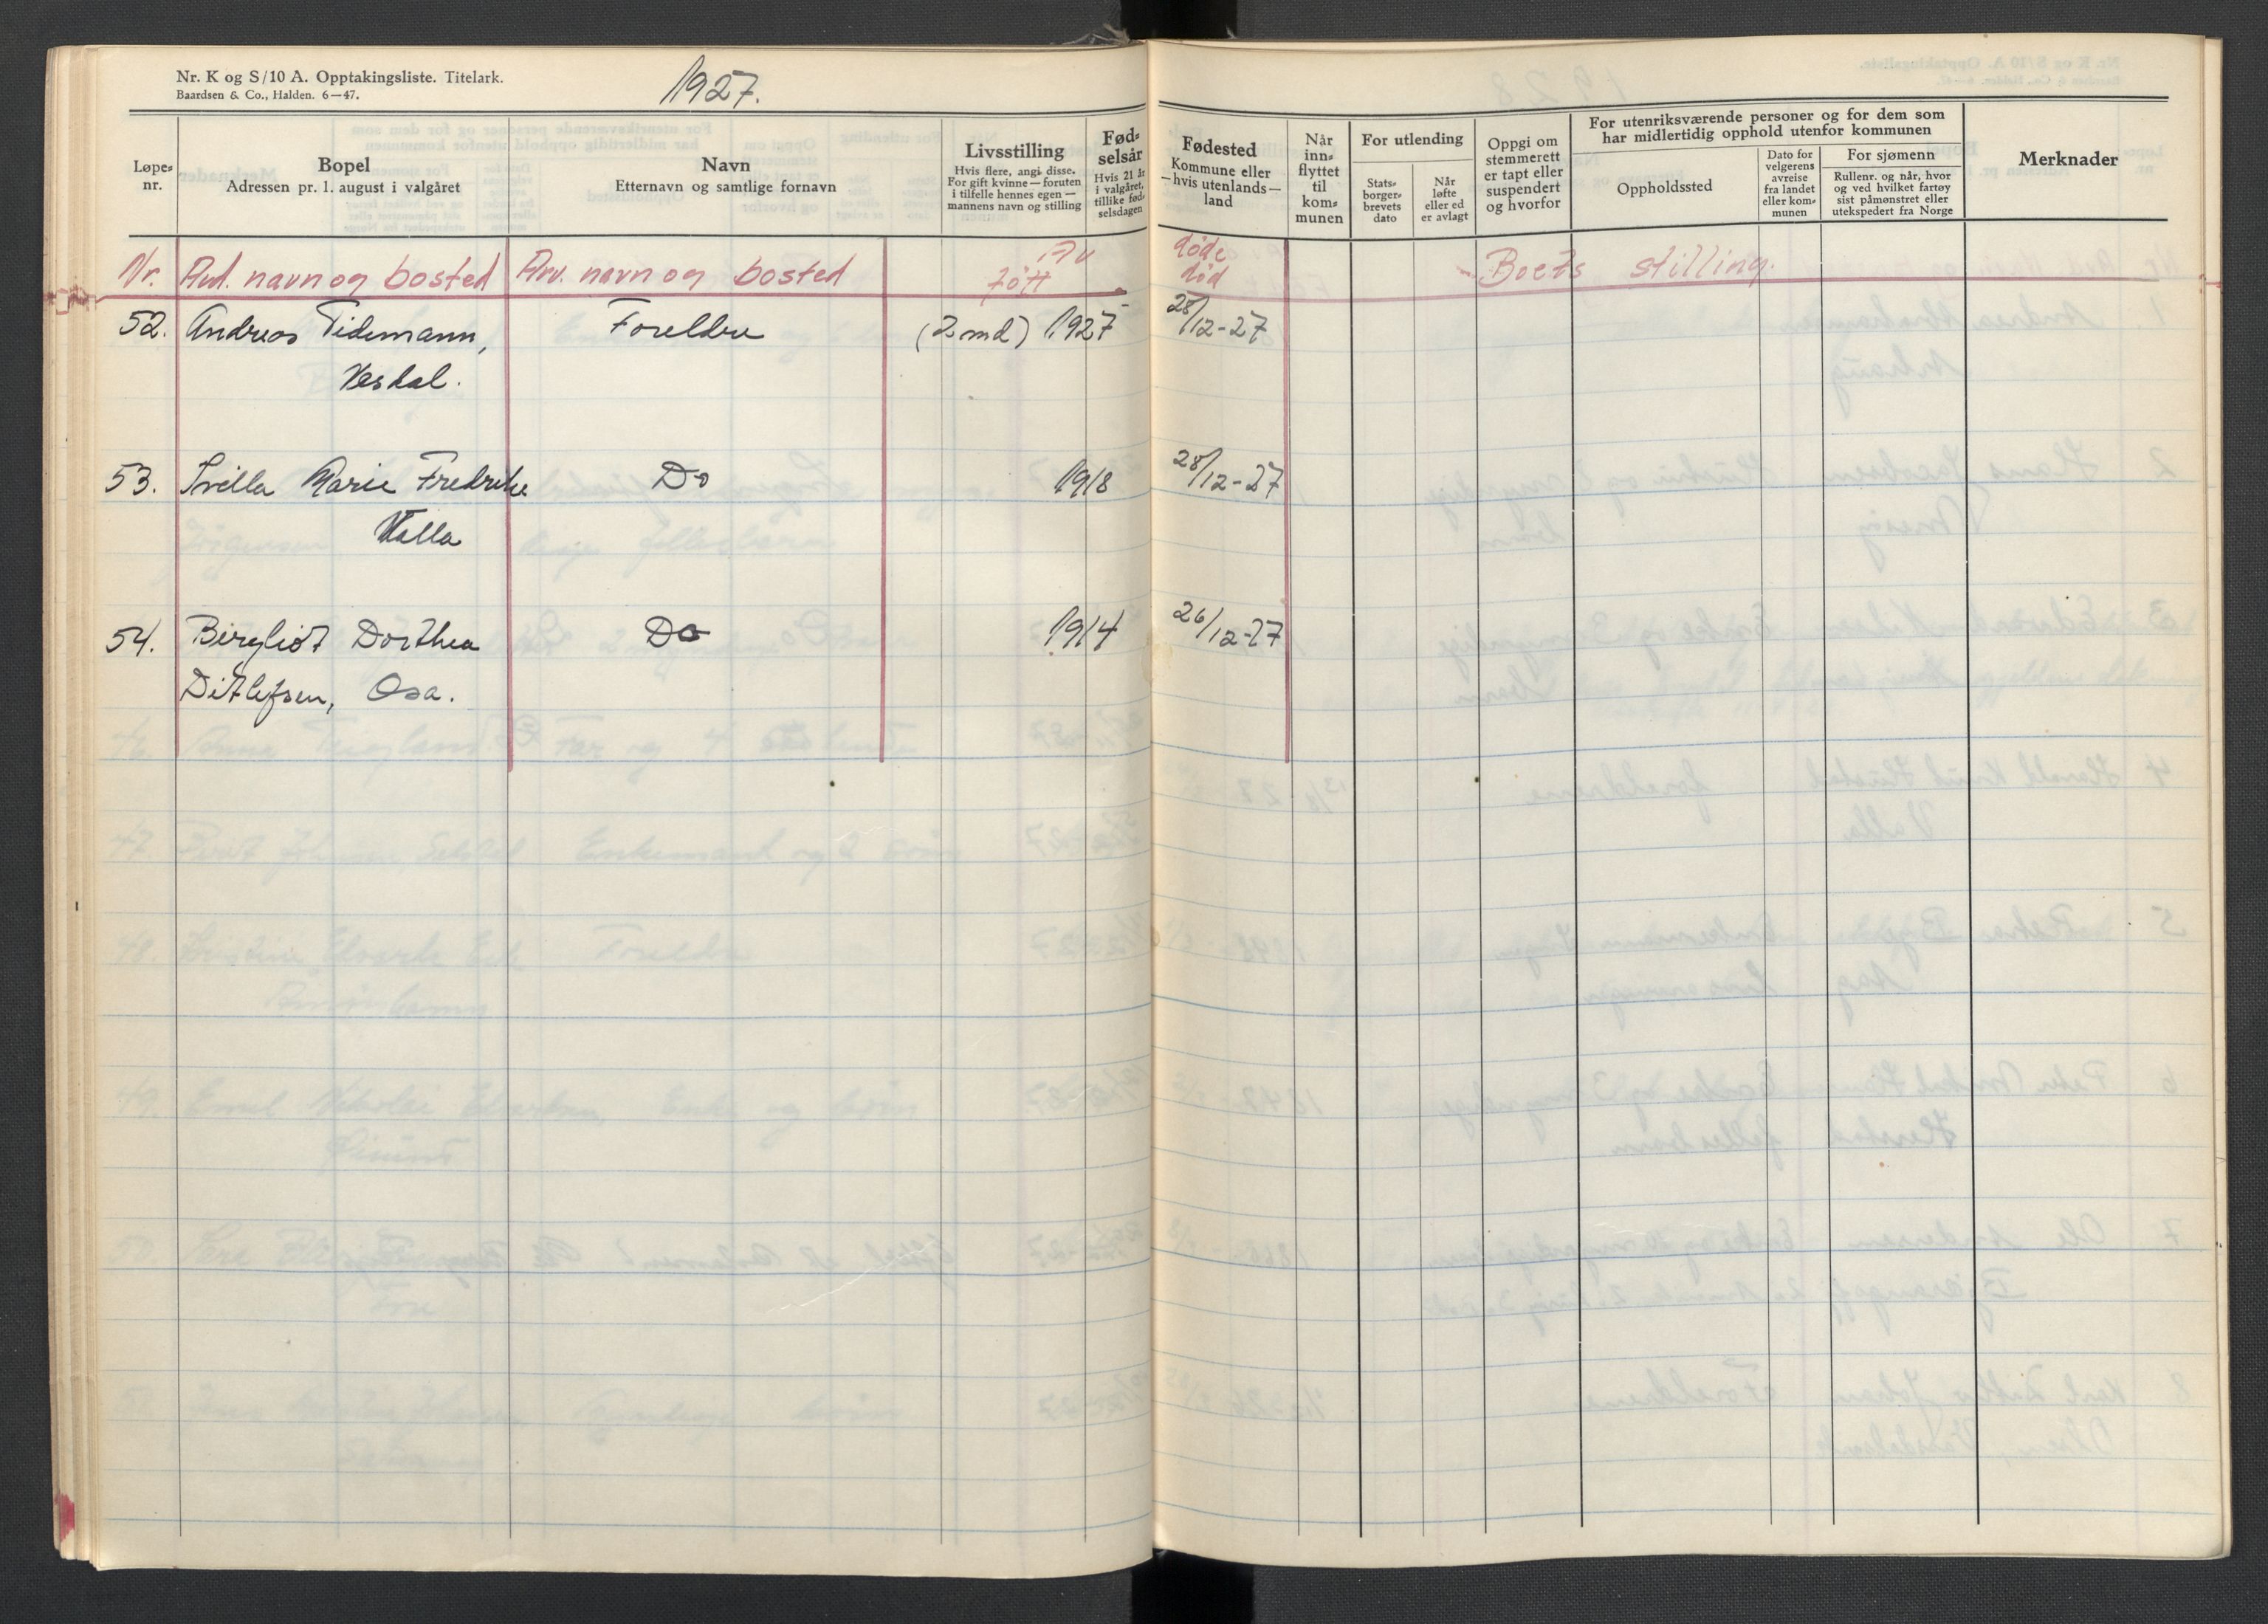 Nr. K og S/10 A. Opptakingsliste. Titelark.
Baardsen & Co., Halden. 6—47.
1927.
Løpe-
nr.
Bopel
Adressen pr. 1. august i valgåret
Navn
Etternavn og samtlige fornavn
Livsstilling
Hvis flere, angi disse.
For gift kvinne — foruten
i tilfelle hennes egen —
mannens navn og stilling
Fød-
selsår
Hvis 21 år
i valgåret,
tillike fød-
selsdagen
Fødested
Kommune eller
— hvis utenlands —
land
Når
inn-
flyttet
til
kom-
munen
For utlending
Stats-
borger-
brevets
dato
Når
løfte
eller ed
er avlagt
Oppgi om
stemmerett
er tapt eller
suspendert
og hvorfor
For utenriksværende personer og for dem som
har midlertidig opphold utenfor kommunen
Oppholdssted
Dato for
velgerens
avreise
fra landet
eller kom-
munen
For sjømenn
Rullenr. og når, hvor
og ved hvilket fartøy
sist påmønstret eller
utekspedert fra Norge
Merknader
Nr. Avd. navn og bosted Arv. navn og bosted
Av døde
født død
Boets stilling.
52. Andreas Tidemann, Foreldre (2 md) 1927 28/12-27
Vesdal.
53. Marie Fredrikke Do 1918 28/12-27
Valla
54. Bergliot Dorthea Do 1914 26/12-27
Ditlefsen, Osa.